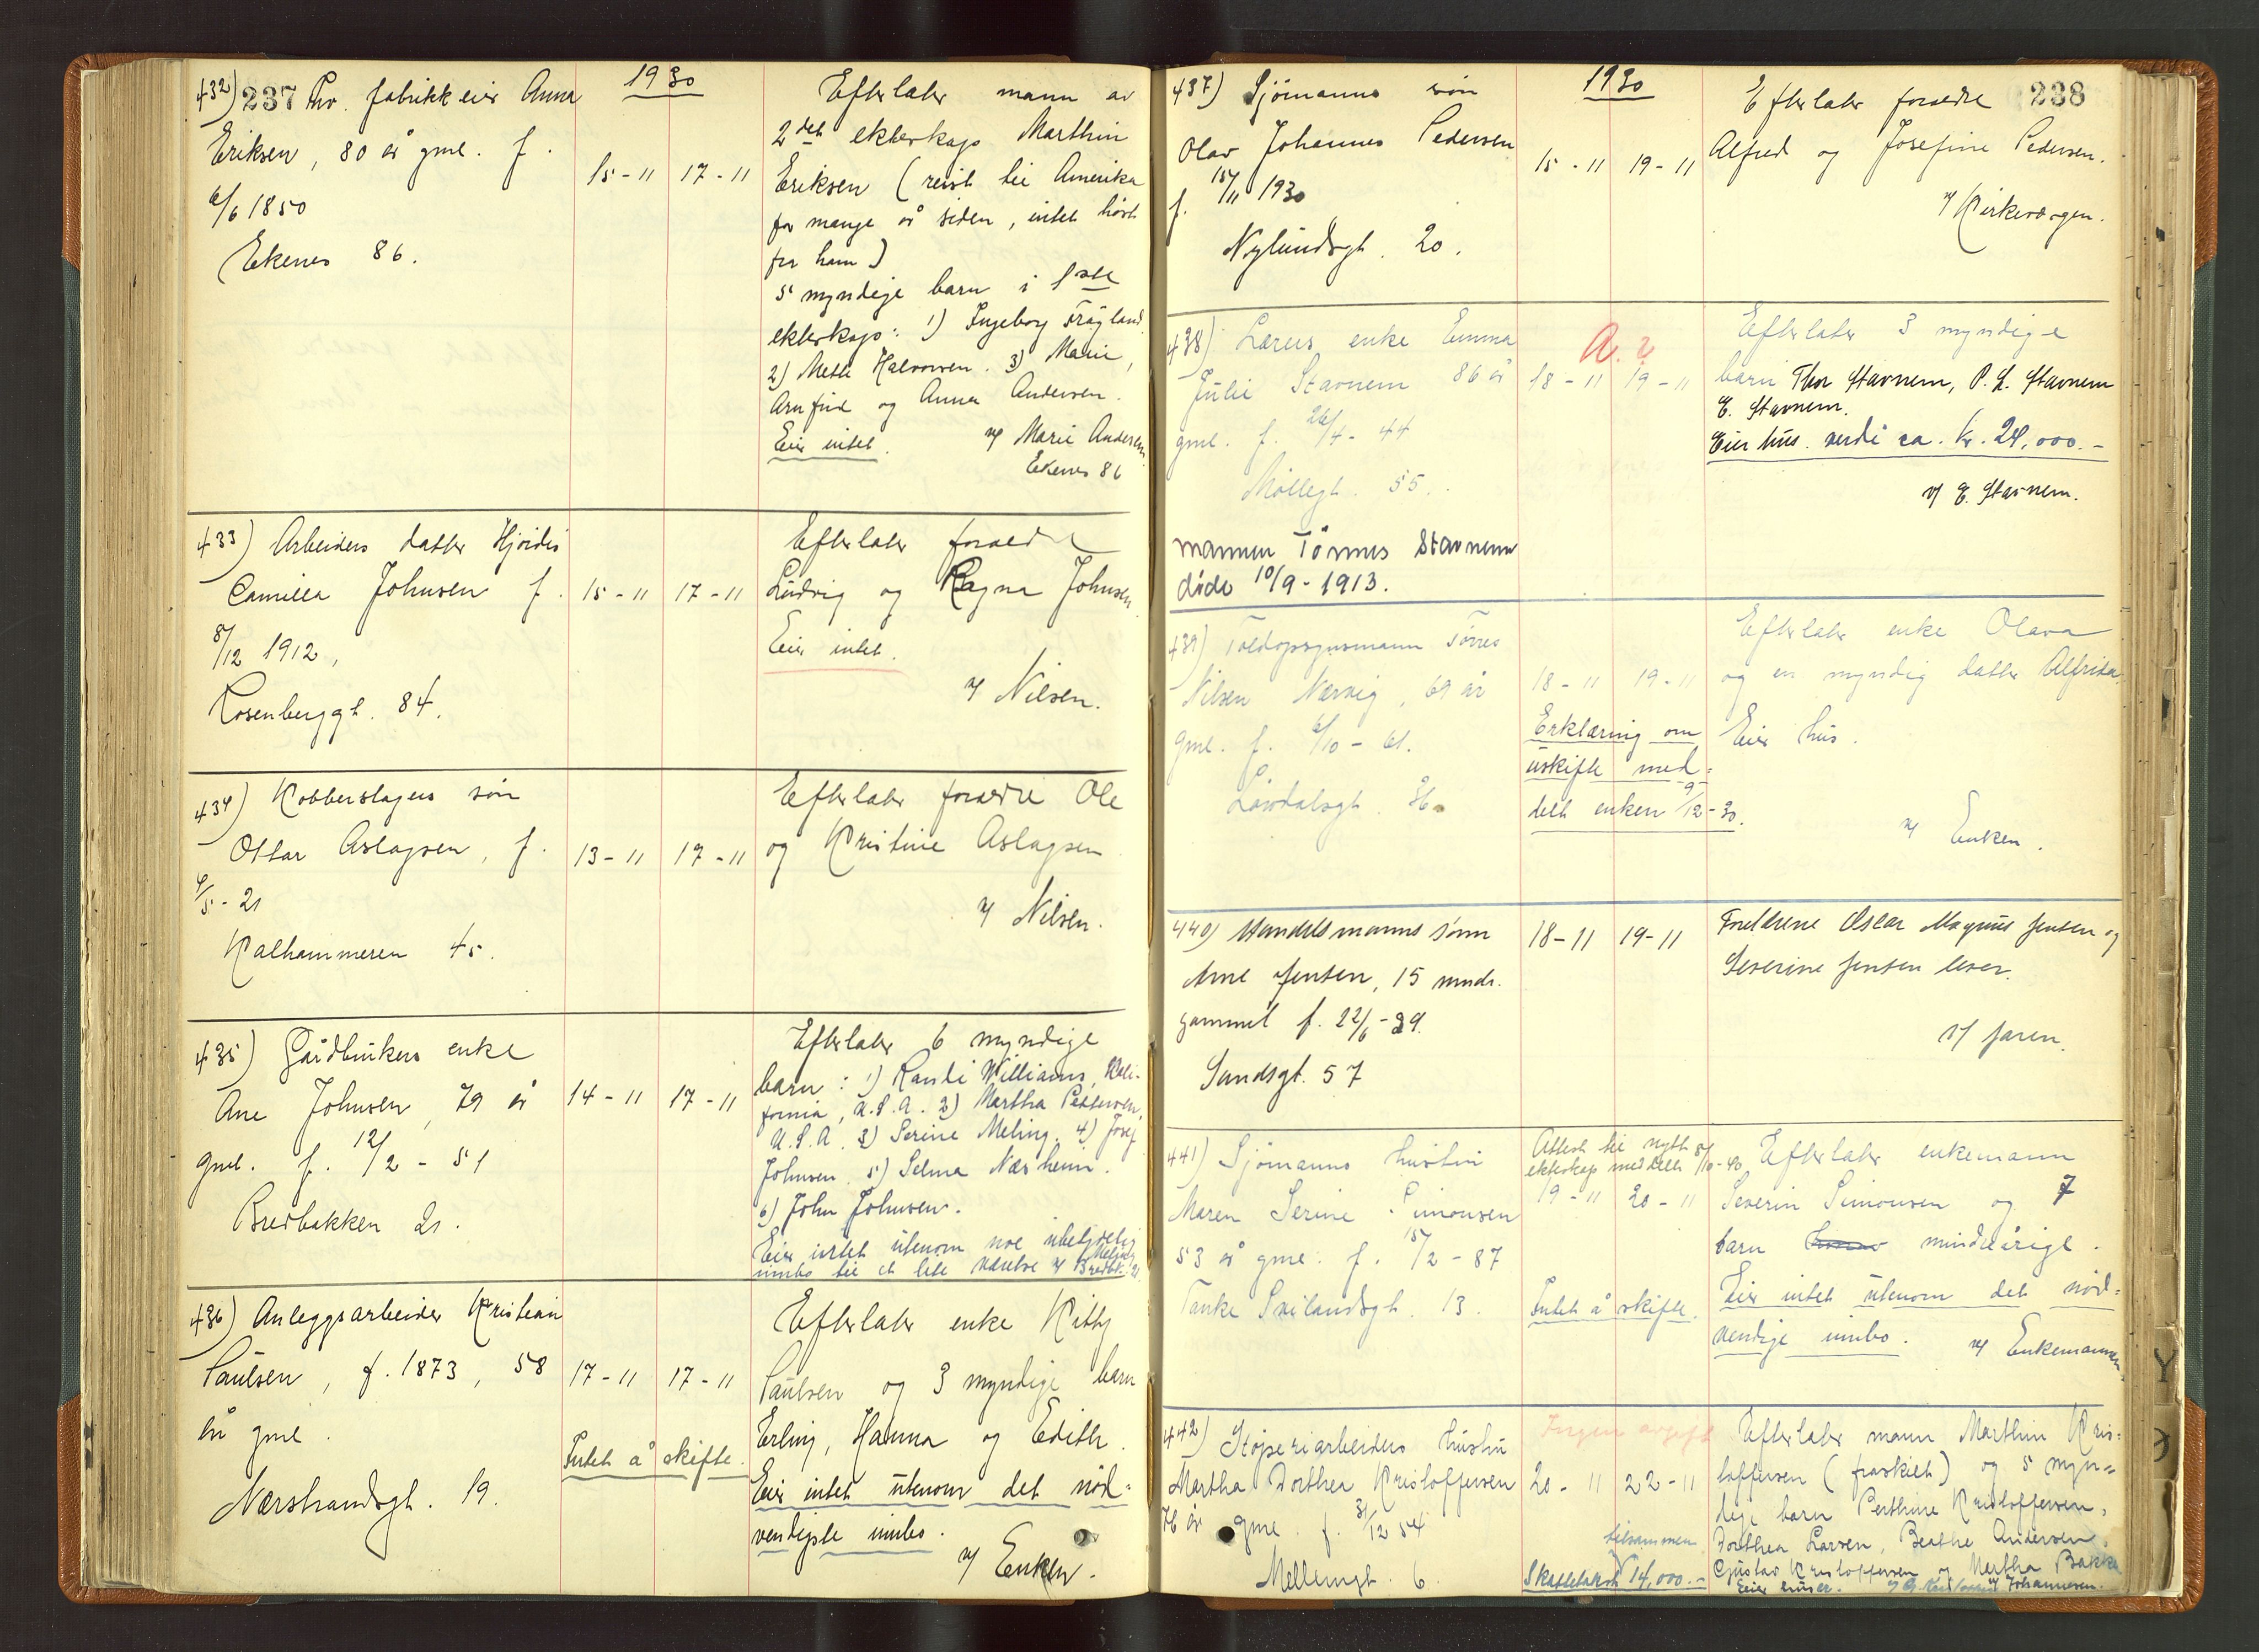 237
1930
432) Fhv. fabrikkeier Anna
Eriksen, 80 år gml. f.
6/6 1850
Ekenes 86.
15-11
17-11
Efterlater mann av
2det ekteskap Marthin
Eriksen (reist til Amerika
for mange år siden, intet hørt
fra ham)
5 myndige barn i 1ste
ekteskap: 1) Ingeborg
2) Mette Halvorsen. 3) Marie,
Arnfred og Anna Andersen.
Eier intet. v/ Marie Andersen
Ekenes 86
433) Arbeiders datter Hjørdis
Camilla Johnsen f.
8/12 1912,
Rosenberggt. 84.
15-11
17-11
Efterlater foreldre
Ludvig og Ragna Johnsen
Eier intet.
v/ Nilsen.
434) Kobberslagers søn
Ottar Aslagsen, f.
4/5-21
Kalhammeren 45.
13-11
17-11
Efterlater foreldre Ole
og Kristine Aslagsen
v/ Nilsen.
435) Gårdbrukers enke
Ane Johnsen, 79 år
gml. f. 12/2-51
Bredbakken 21.
14-11
17-11
Efterlater 6 myndige
barn: 1) Randi Williams, Kali-
fornia, U.S.A. 2) Martha Pettersen,
U.S.A. 3) Serine Meling. 4) Josef
Johnsen. 5) Selma Nærheim.
6) John Johnsen.
Eier intet utenom noe ubetydelig
innbo til et lite værelse v/ Meling Bredbk. 21
436) Anleggsarbeider Kristian
Paulsen, f. 1873, 58
år gml.
Nærstrandsgt. 19.
17-11
17-11
Intet å skifte.
Efterlater enke Kitty
Paulsen og 3 myndige barn
Erling, Hanna og Edith.
Eier intet utenom det nød-
vendigste innbo.
v/ Enken.
238
1930
437) Sjømanns søn
Olav Johannes Pedersen
f. 15/11 1930
Nylundsgt. 20.
15-11
19-11
Efterlater foreldre
Alfred og Josefine Pedersen.
v/ Kirkevergen.
438) Lærers enke Emma
Julie Stavnem 86 år
gml. f. 26/4-44
Møllegt. 55.
mannen Tønnes Stavnem
døde 10/9-1913.
18-11
19-11
Efterlater 3 myndige
barn Thor Stavnem, P. L. Stavnem
E. Stavnem.
Eier hus. verdi ca. kr. 24,000.-
v/ E. Stavnem.
439) Toldopsynsmann Tørres
Nilsen Nærvig, 69 år
gml. f. 6/10-61.
Løvdalsgt. 36.
18-11
19-11
Erklæring om
uskifte med-
delt enken 9/12-30.
Efterlater enke Olava
og en myndig datter Alfrida.
Eier hus.
v/ Enken.
440) Handelsmanns sønn
Arne Jensen, 15 mndr.
gammel f. 22/6-29.
Sandsgt. 57
18-11
19-11
Foreldrene Oscar Magnus Jensen og
Severine Jensen lever.
v/ faren.
441) Sjømanns hustru
Maren Serine Simonsen
53 år gml. f. 15/2-87
Tanke Svilandsgt. 13.
Attest til nytt
ekteskap meddelt 8/10-40
19-11
20-11
Intet å skifte.
Efterlater enkemann
Severin Simonsen og 7
barn mindreårige.
Eier intet utenom det nød-
vendige innbo. v/ Enkemannen
442) Støperiarbeiders hustru
Martha Dorthea Kristoffersen
76 år gml. f. 31/12 54
Mellemgt. 6.
Ingen avgift
20-11
22-11
tilsammen
Skattetakst 14,000.-
Efterlater mann Marthin Kris-
toffersen (fraskilt) og 5 myn-
dige barn Perthine Kristoffersen,
Dorthea Larsen, Beathe Andersen,
Gustav Kristoffersen og Martha Bakke
Eier huser. Johannesen.